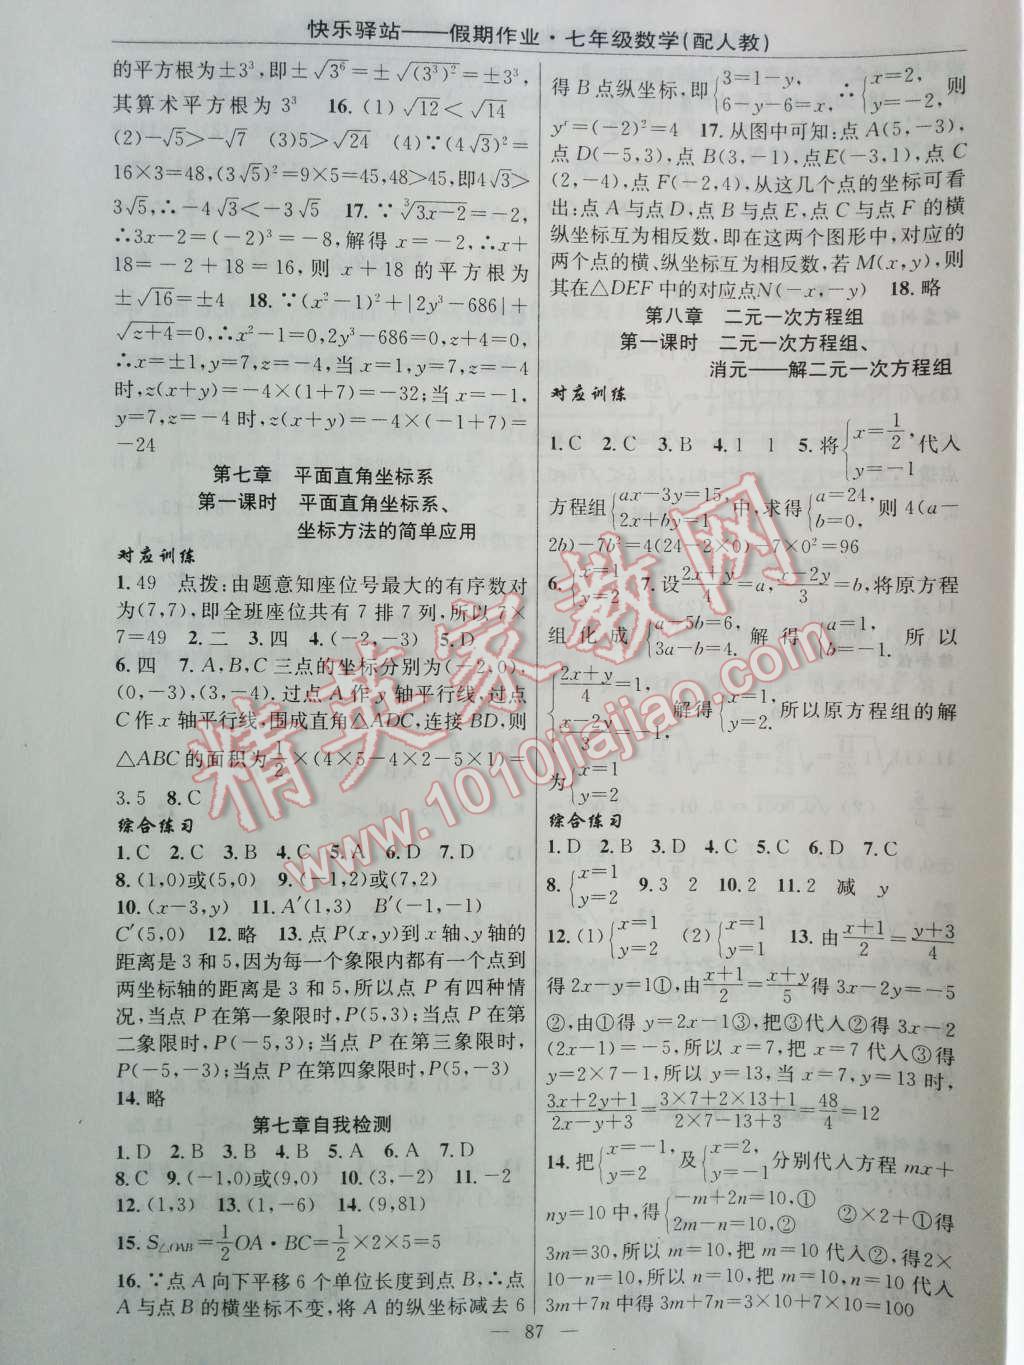 快乐驿站——假期作业·七年级数学(配人教)
的平方根为±3³,即±√3⁶=±√(3³)²=±3³,
其算术平方根为 3³ 16. (1) √12<√14
(2)-√5>-√7 (3)5>√24 (4)∵(4√3)²=
16×3=48,(3√5)²=9×5=45,48>45,即4√3>
3√5,∴-4√3<-3√5 17. ∵∛3x-2=-2,
∴3x-2=(-2)³=-8,解得 x=-2,∴x+
18=-2+18=16,则 x+18 的平方根为
±√16=±4 18. ∵(x²-1)²+|2y³-686|+
√z+4=0,∴x²-1=0,2y³-686=0,z+4=0,
∴x=±1,y=7,z=-4,当 x=1,y=7,z=-4
时,z(x+y)=-4×(1+7)=-32;当 x=-1,
y=7,z=-4 时,z(x+y)=-4×(-1+7)=
-24
第七章 平面直角坐标系
第一课时 平面直角坐标系、
坐标方法的简单应用
对应训练
1. 49 点拨:由题意知座位号最大的有序数对
为(7,7),即全班座位共有 7 排 7 列,所以 7×
7=49 2. 二 3. 四 4. (-2,-3) 5. D
6. 四 7. A,B,C 三点的坐标分别为(-2,0),
(0,-3),(3,-4).过点 A 作 y 轴平行线,过点
C 作 x 轴平行线,围成直角△ADC,连接 BD,则
△ABC 的面积为1/2×(4×5-4×2-5×1)=
3.5 8. C
综合练习
1. C 2. C 3. B 4. C 5. A 6. D 7. D
8. (1,0)或(5,0) 9. (-1,2)或(7,2)
10. (x-3,y) 11. A′(1,3) B′(-1,-1)
C′(5,0) 12. 略 13. 点 P(x,y)到 x 轴、y 轴的
距离是 3 和 5,因为每一个象限内都有一个点到
两坐标轴的距离是 3 和 5,所以点 P 有四种情
况,当点 P 在第一象限时,P(5,3);当点 P 在第
二象限时,P(-5,3);当点 P 在第三象限时,
P(-5,-3);当点 P 在第四象限时,P(5,-3)
14. 略
第七章自我检测
1. D 2. D 3. B 4. B 5. A 6. D 7. D
8. C 9. (-1,0)或(9,0) 10. (3,-2) 11. -2
12. (1,3) 13. (1,-6) 14. (9,81)
15. S△OAB=1/2OA·BC=1/2×2×5=5
16. ∵点 A 向下平移 6 个单位长度到点 B,∴点
A 与点 B 的横坐标不变,将 A 的纵坐标减去 6
得 B 点纵坐标,即{3=1-y, 6-y-6=x, ∴{x=2, y=-2, 则
yˣ=(-2)²=4 17. 从图中可知:点 A(5,-3),
点 D(-5,3),点 B(3,-1),点E(-3,1),点 C
(2,-4),点 F(-2,4),从这几个点的坐标可看
出:点 A 与点 D,点 B 与点 E,点 C 与点 F 的横
纵坐标互为相反数,即在这两个图形中,对应的
两个点的横、纵坐标互为相反数,若 M(x,y),则
其在△DEF 中的对应点N(-x,-y) 18. 略
第八章 二元一次方程组
第一课时 二元一次方程组、
消元——解二元一次方程组
对应训练
1. C 2. C 3. B 4. 1 1 5. 将{x=1/2, y=-1 代入
方程组{ax-3y=15, 2x+by=1 中,求得{a=24, b=0, 则 4(a-
2b)-7b²=4(24-2×0)-7×0²=96
6. {x=1 y=2 7. 设(2x+y)/4=a,(x-2y)/3=b,将原方程
组化成{a-5b=6, 3a-b=4. 解得{a=1, b=-1. 所以
{(2x+y)/4=1, (x-2y)/3=-1, 解得{x=1, y=2. 所以原方程组的解
为{x=1 y=2
综合练习
1. D 2. B 3. D 4. C 5. C 6. D 7. C
8. {x=1 y=2 9. 3 2 10. 2 11. 2 减 y
12. (1){x=1 y=2 (2){x=1 y=1 13. 由(x+1)/2=(y+3)/4
得 2x-y=1①,由(x+1)/2=(x+y)/5得 3x-2y=-5
②,由①得 y=2x-1③,把③代入②得 3x-2
(2x-1)=-5,所以 x=7,把 x=7 代入③得
y=2×7-1,所以 y=13,当 x=7,y=13 时,
(3x+2y+1)/(2x-y+3)=(3×7+2×13+1)/(2×7-13+3)=48/4=12
14. 把{x=-1, y=2 及{x=2, y=-1 分别代入方程 mx+
ny=10 中,得{-m+2n=10,① 2m-n=10,② ②×2+①得
3m=30,所以 m=10,把 m=10 代入②,得2×
10-n=10,所以 n=10,把 m=10,n=10 代入
3m+7n 中得 3m+7n=3×10+7×10=100
— 87 —
精英家教网
www.1010jiajiao.com